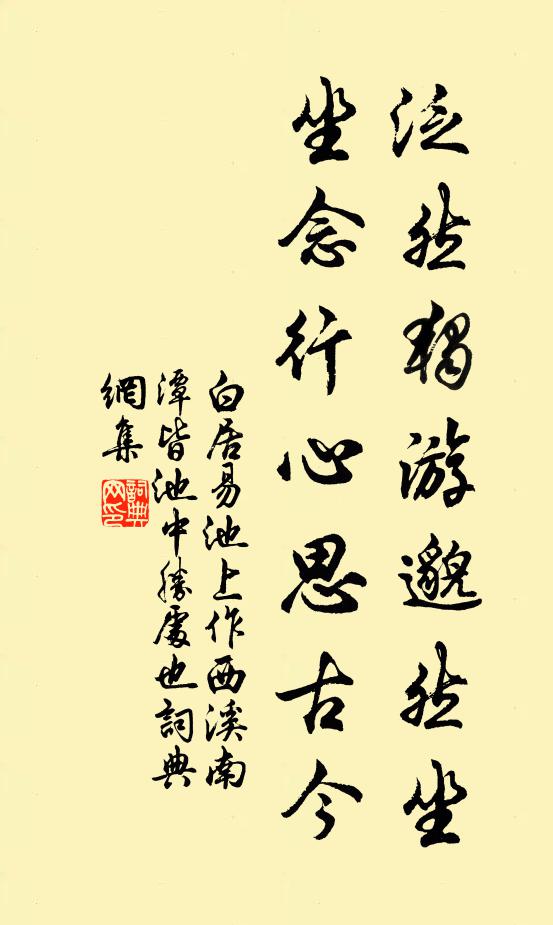 泛然獨游邈然坐
坐念行心思古今
白居易池上作西溪南
潭皆池中勝處也詞典
網集
詞典
网印